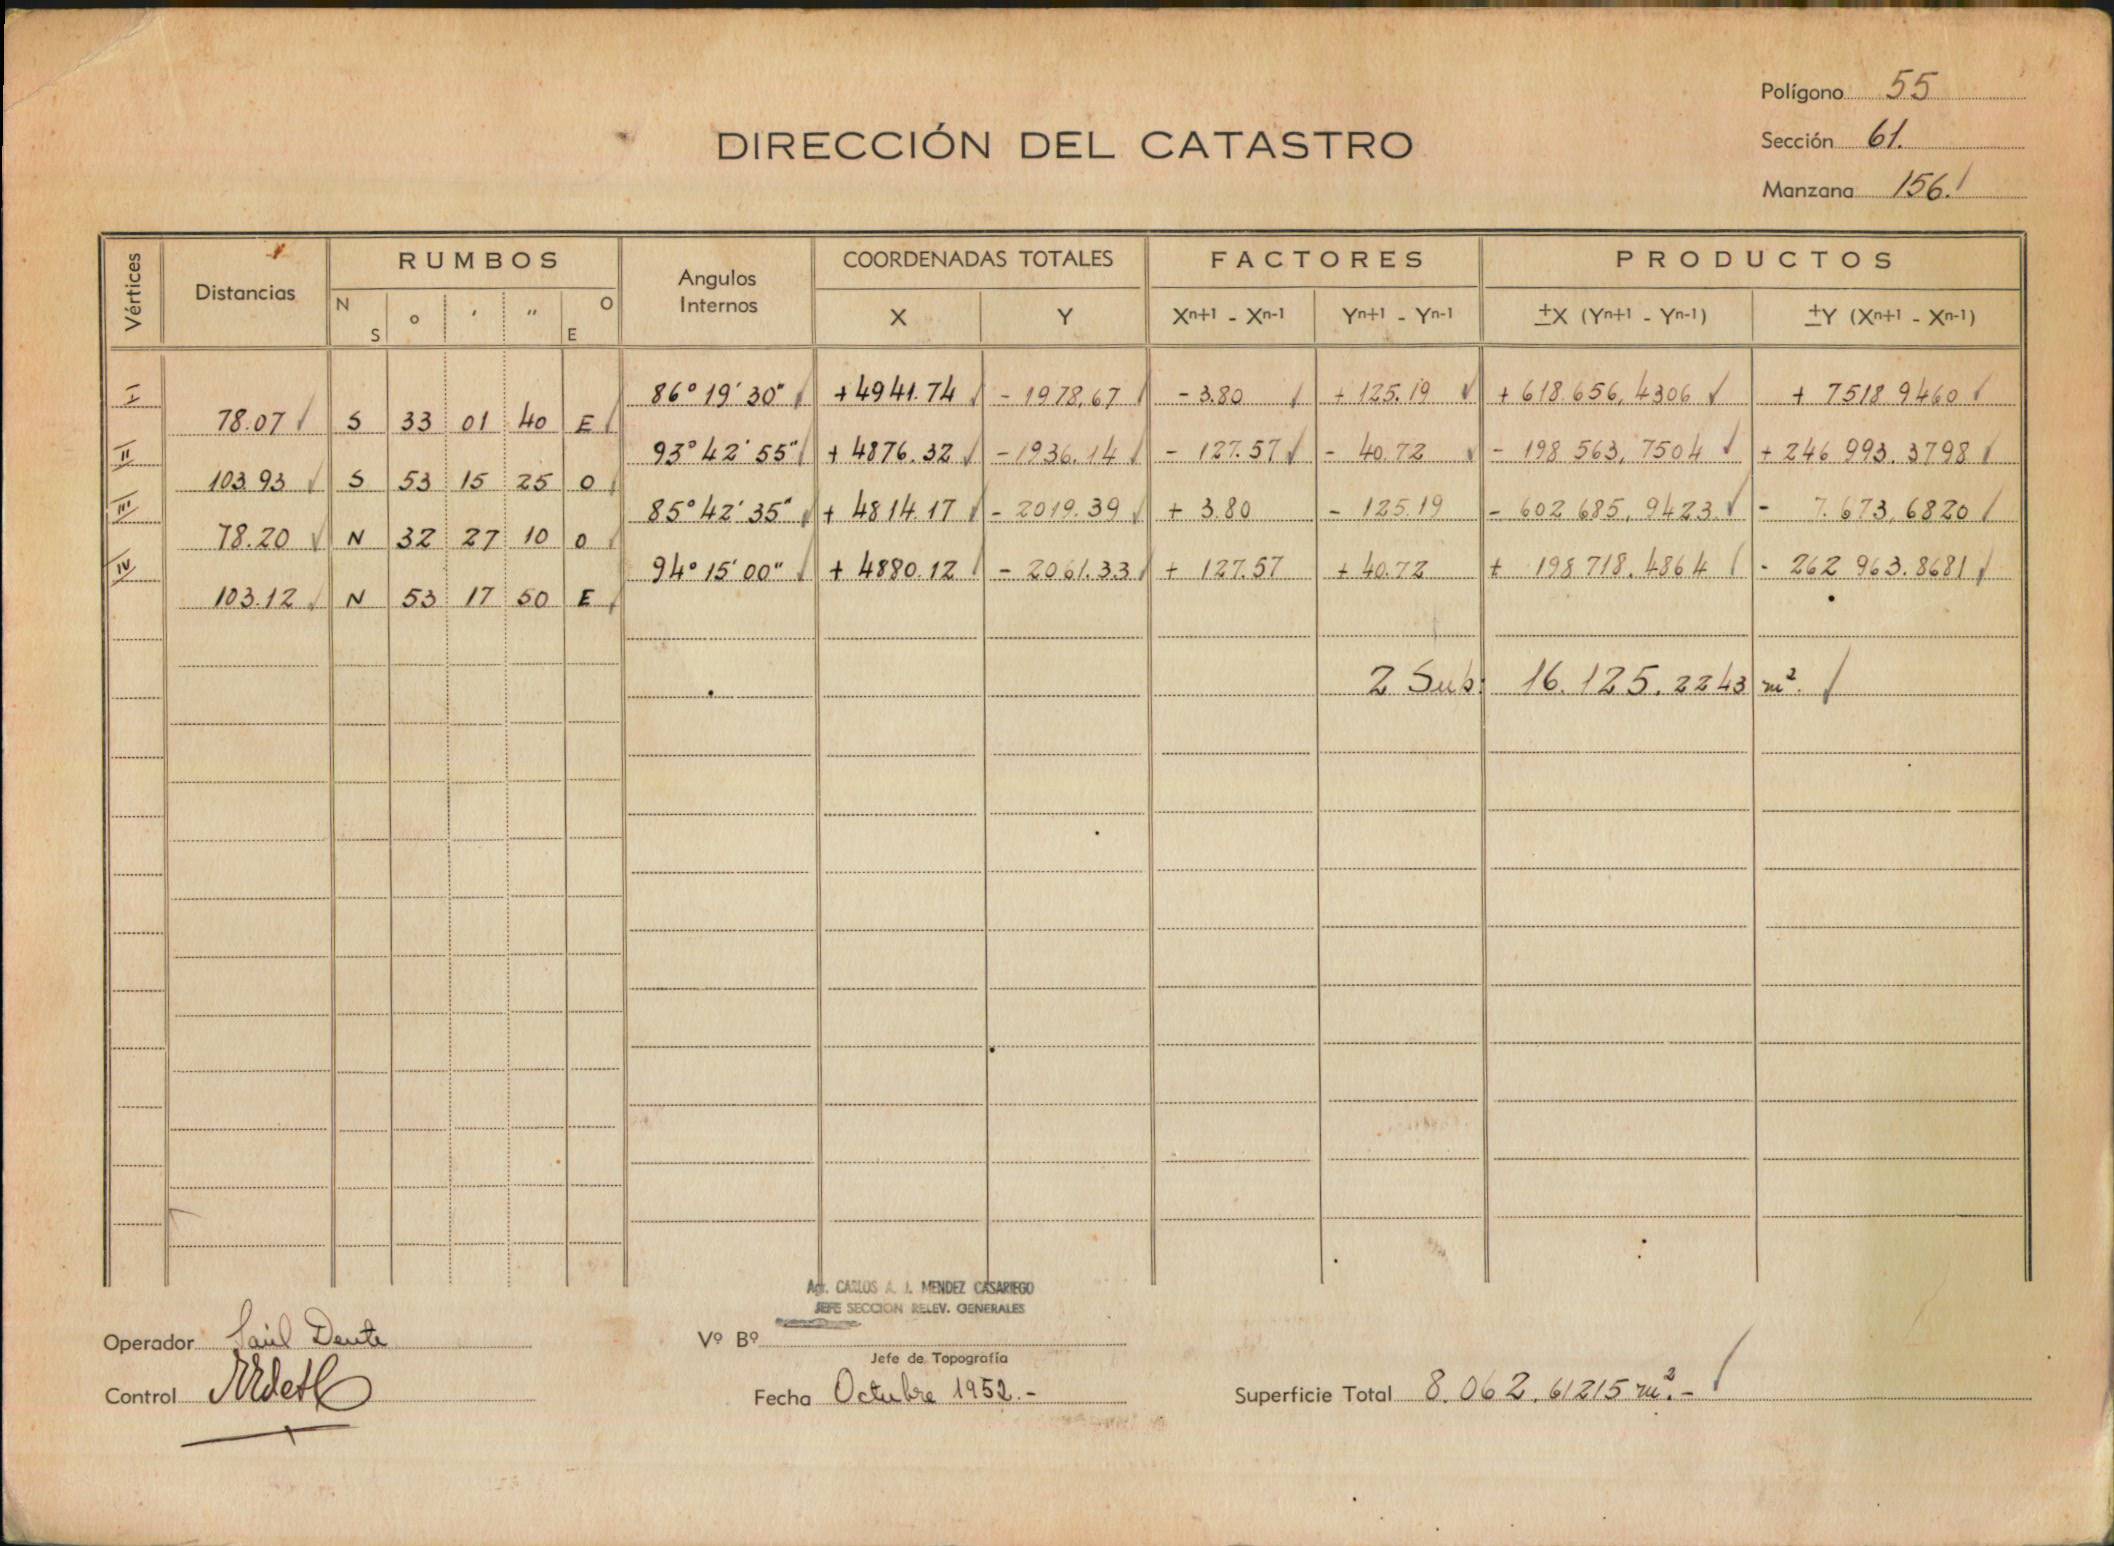 Polígono 55
DIRECCIÓN DEL CATASTRO
Sección 61.
Manzana 156.
Vértices Distancias RUMBOS Angulos Internos COORDENADAS TOTALES FACTORES PRODUCTOS
N S ° ' " O E X Y Xn+1 - Xn-1 Yn+1 - Yn-1 ±X (Yn+1 - Yn-1) ±Y (Xn+1 - Xn-1)
I 86° 19' 30" +4941.74 - 1978,67 - 3.80 + 125.19 + 618.656,4306 + 7518 9460
78.07 S 33 01 40 E
II 93° 42' 55" + 4876.32 - 1936.14 - 127.57 - 40.72 - 198 563,7504 + 246 993.3798
103.93 S 53 15 25 O
III 85° 42' 35" + 4814.17 - 2019.39 + 3.80 - 125.19 - 602 685,9423. - 7.673,6820
78.20 N 32 27 10 O
IV 94° 15' 00" + 4880.12 - 2061.33 + 127.57 + 40.72 + 198 718.4864 - 262 963.8681
103.12 N 53 17 50 E
2 Sup: 16.125.2243 m².
Agr. CARLOS A. J. MENDEZ CASARIEGO
JEFE SECCION RELEV. GENERALES
Operador Saúl Dente
Vº Bº
Jefe de Topografía
Control
Fecha Octubre 1952.-
Superficie Total 8.062.61215 m².-